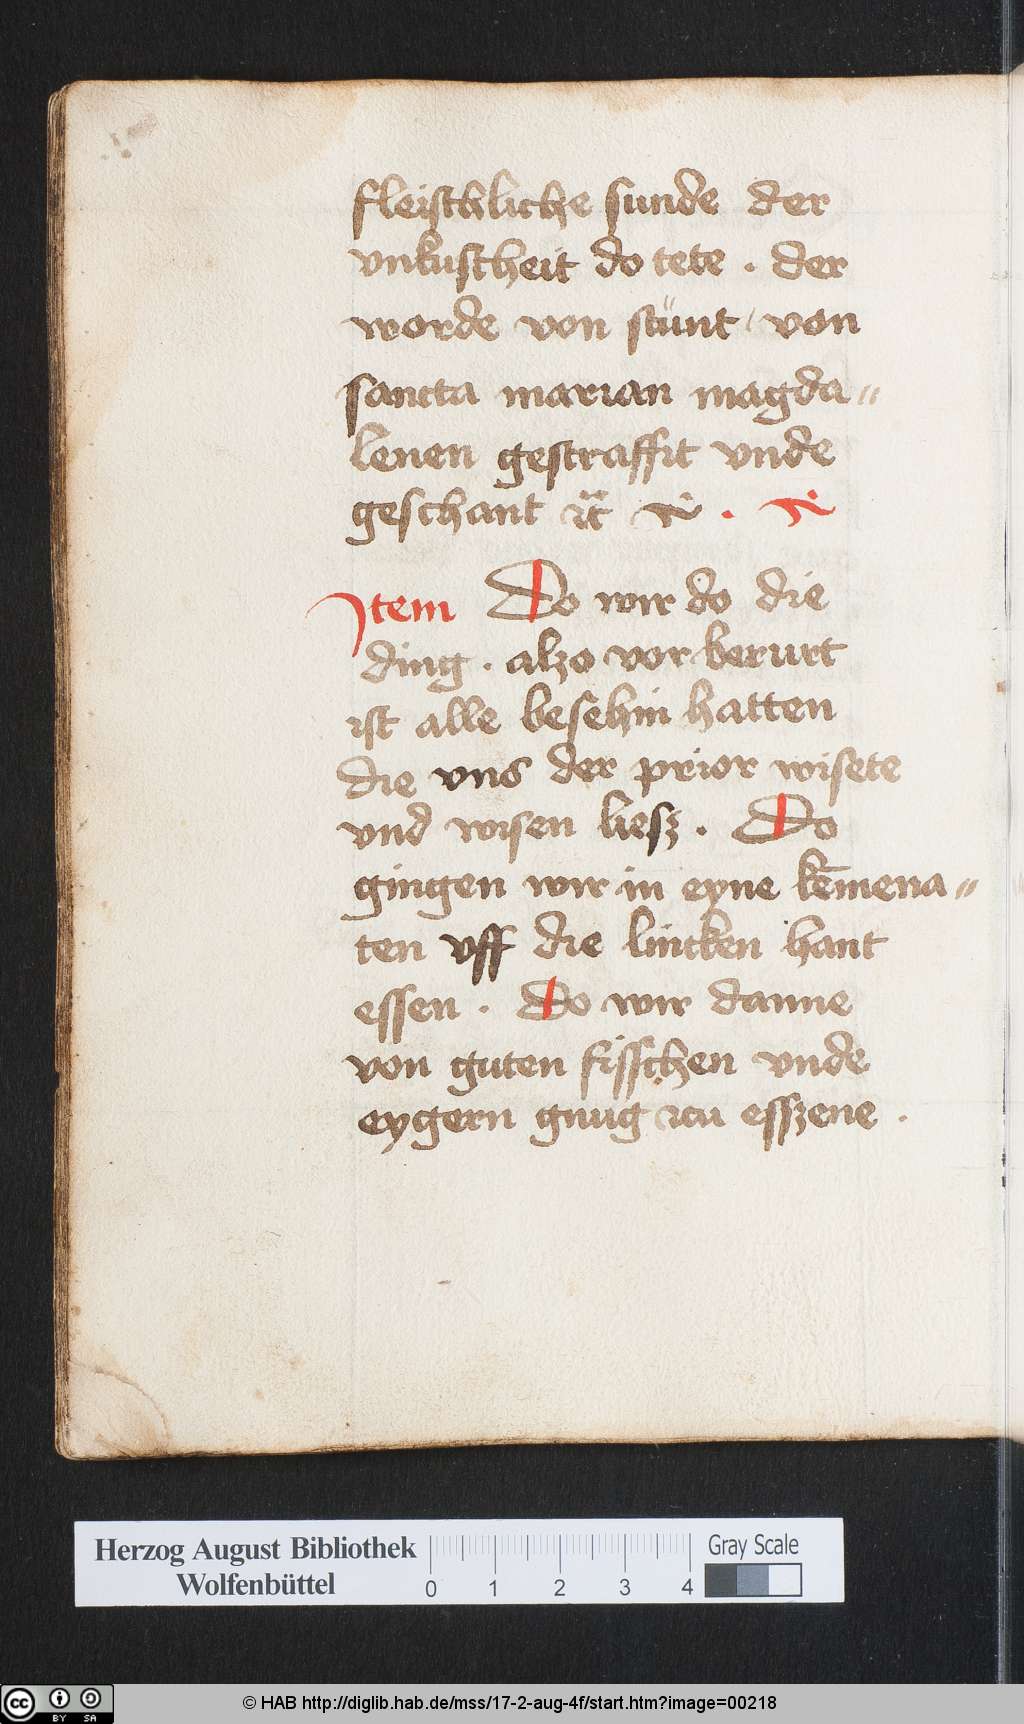 fleischliche sunde der
vnkuscheit do tete . der
worde von stünt von
sancta marian magda⸗
lenen gestraffit vnde
geschant
Item Do wir do die
ding . alzo vor berurt
ist alle besehin hatten
die vns der prior wisete
vnd wisen liesz . Do
gingen wir in eyne kēmena⸗
ten vff die lincken hant
essen . Do wir danne
von guten fisschen vnde
eygern gnug zcu esszene .
Herzog August Bibliothek
Wolfenbüttel
0 1 2 3 4
Gray Scale
cc BY SA
© HAB http://diglib.hab.de/mss/17-2-aug-4f/start.htm?image=00218